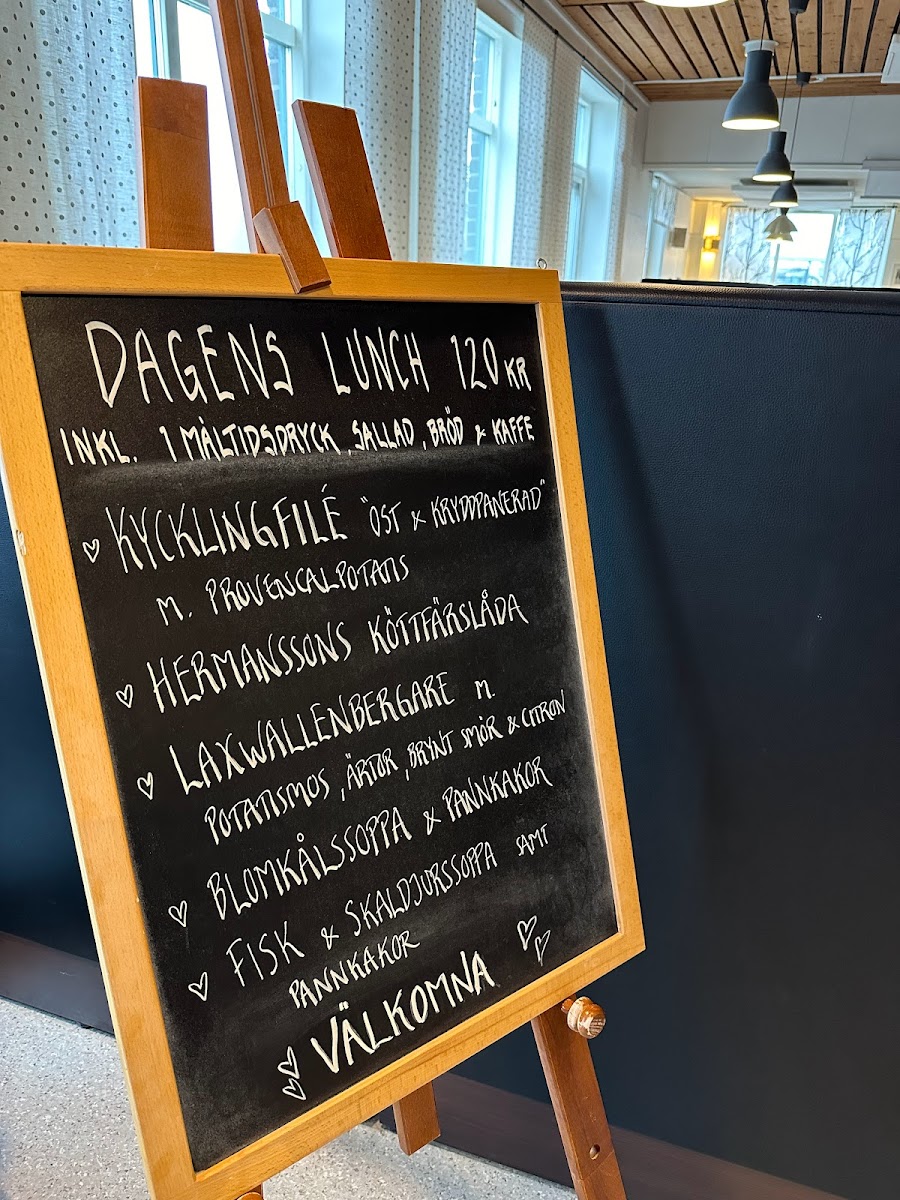 DAGENS LUNCH 120 KR
INKL. 1 MÅLTIDSDRYCK, SALLAD, BRÖD & KAFFE
♡ KYCKLINGFILÉ "OST & KRYDDPANERAD"
M. PROVENCALPOTATIS
♡ HERMANSSONS KÖTTFÄRSLÅDA
♡ LAXWALLENBERGARE M.
POTATISMOS, ÄRTOR, BRYNT SMÖR & CITRON
♡ BLOMKÅLSSOPPA & PANNKAKOR
♡ FISK & SKALDJURSSOPPA SAMT
PANNKAKOR
VÄLKOMNA